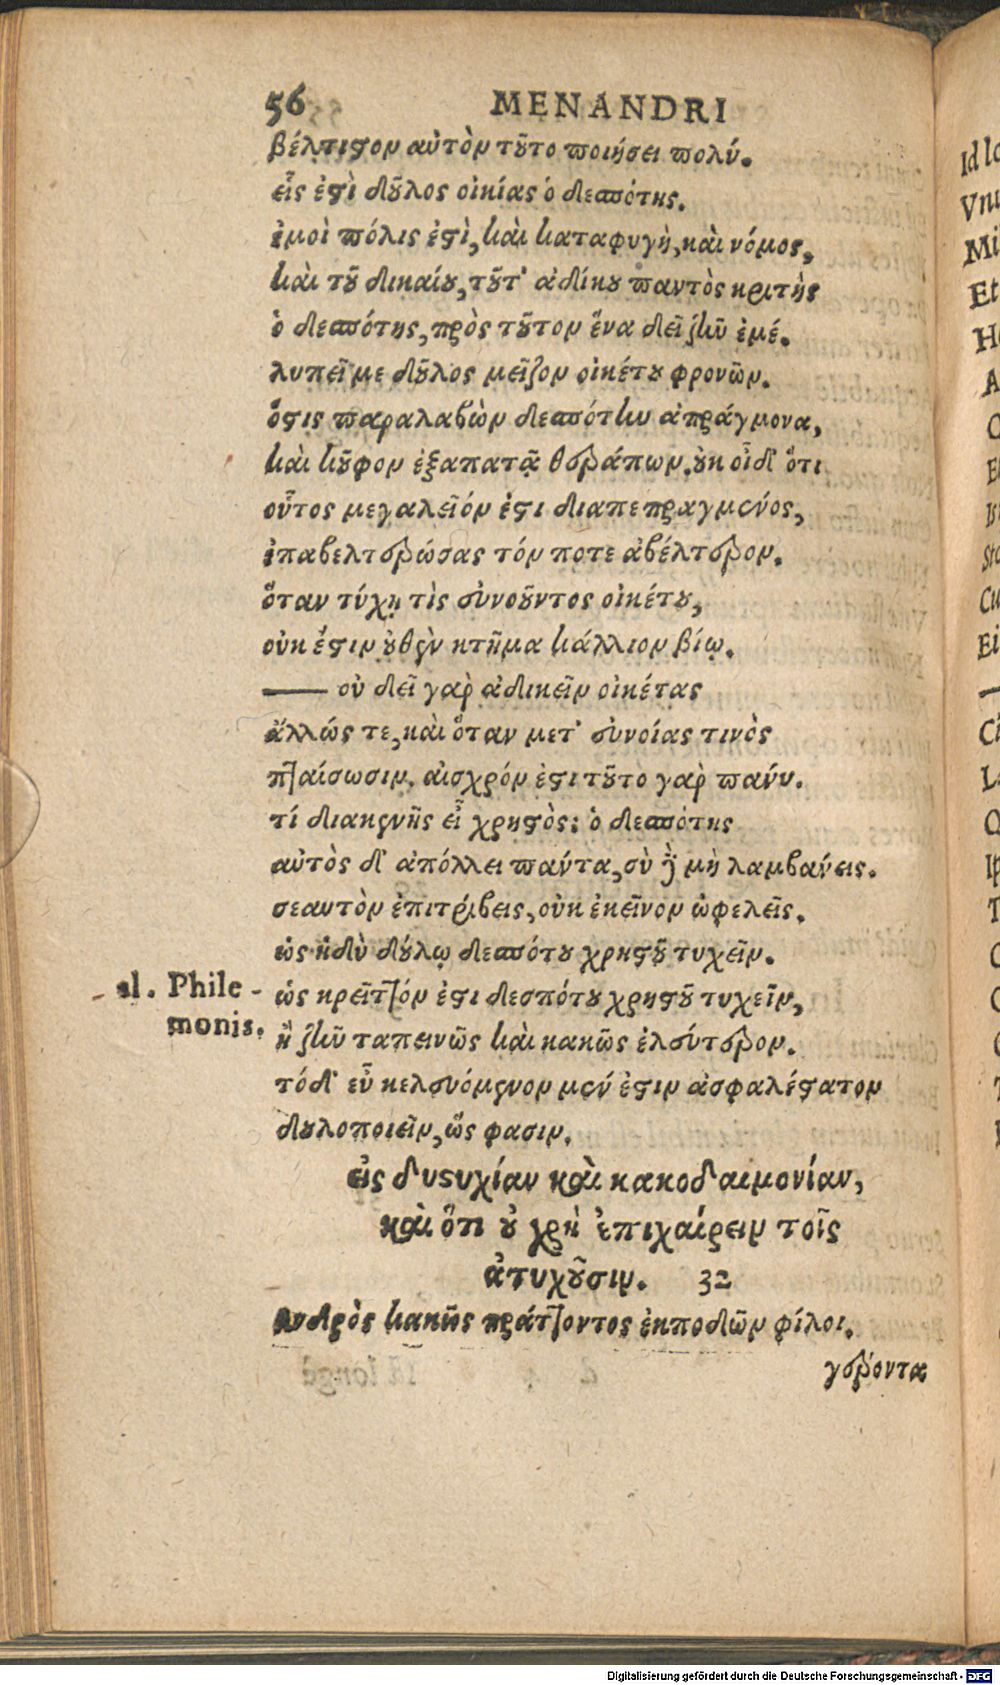 56 MENANDRI
βέλτιστον αὐτὸν τοῦτο ποιήσει πολύ.
εἷς ἐστὶ δοῦλος οἰκίας ὁ δεσπότης.
ἐμοὶ πόλις ἐστὶ, καὶ καταφυγὴ, καὶ νόμος,
καὶ τοῦ δικαίου, τοῦτ' ἀδίκου παντὸς κριτὴς
ὁ δεσπότης, πρὸς τοῦτον ἕνα δεῖ ζῆν ἐμέ.
λυπεῖ με δοῦλος μεῖζον οἰκέτου φρονῶν.
ὅστις παραλαβὼν δεσπότην ἀπράγμονα,
καὶ κοῦφον ἐξαπατᾷ θεράπων, οὐκ οἶδ' ὅτι
οὗτος μεγαλεῖόν ἐστι διαπεπραγμένος,
ἐπαβελτερώσας τόν ποτε ἀβέλτερον.
ὅταν τύχῃ τὶς εὐνοοῦντος οἰκέτου,
οὐκ ἔστιν οὐθὲν κτῆμα κάλλιον βίῳ.
—— οὐ δεῖ γὰρ ἀδικεῖν οἰκέτας
ἄλλώς τε, καὶ ὅταν μετ' εὐνοίας τινὸς
πταίσωσιν. αἰσχρόν ἐστι τοῦτο γὰρ πανύ.
τί διακενῆς εἶ χρηστὸς; ὁ δεσπότης
αὐτὸς δ' ἀπόλλει πάντα, σὺ δὲ μὴ λαμβάνεις.
σεαυτὸν ἐπιτρίβεις, οὐκ ἐκεῖνον ὠφελεῖς.
ὡς ἡδὺ δούλῳ δεσπότου χρηστοῦ τυχεῖν.
al. Phile-
monis.
ὡς κρεῖττόν ἐστι δεσπότου χρηστοῦ τυχεῖν,
ἢ ζῆν ταπεινῶς καὶ κακῶς ἐλεύτερον.
τόδ' εὖ κελευόμενον μέν ἐστιν ἀσφαλέστατον
δουλοποιεῖν, ὥς φασιν.
εἰς δυστυχίαν καὶ κακοδαιμονίαν,
καὶ ὅτι οὐ χρὴ ἐπιχαίρειν τοῖς
ἀτυχοῦσιν. 32
Ανδρὸς κακῶς πράττοντος ἐκποδὼν φίλοι.
γέροντα
Digitalisierung gefördert durch die Deutsche Forschungsgemeinschaft - DFG